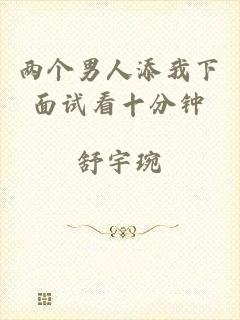 两个男人添我下
面试看十分钟
舒宇琬